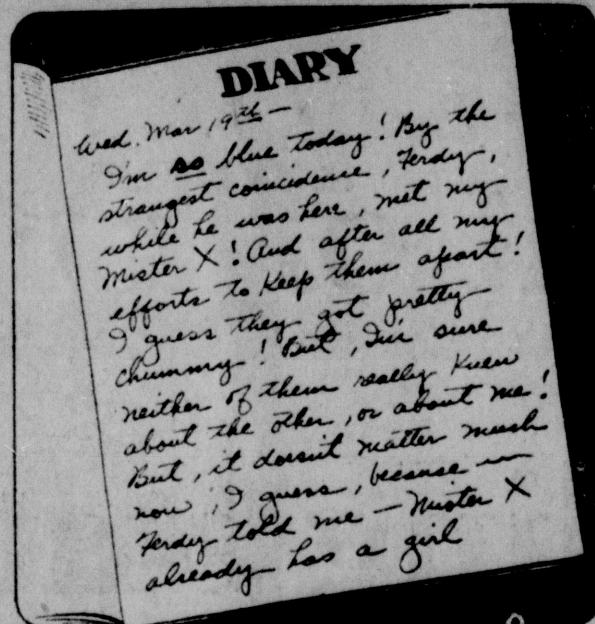 DIARY
Wed. Mar 19th —
I'm so blue today! By the
strangest coincidence, Ferdy,
while he was here, met my
Mister X! And after all my
efforts to keep them apart!
I guess they got pretty
chummy! But, I'm sure
neither of them really knew
about the other, or about me!
But, it doesn't matter much
now, I guess, because —
Ferdy told me — Mister X
already has a girl